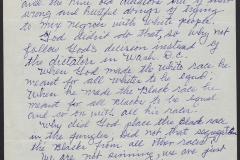 and the kind old
wrong and hateful things
to mix Negroes with white people.
God didn't do that, so why not
follow God's decision instead of
the dictators in Wash D.C.
When God made the white race he
meant for all whites to be equal;
When he made the Black race he
meant for all Blacks to be equal
and so on with all his races.
Why did God place the Black race
in the jungles, did not that segregate
the Blacks from all other races?
We are not sinning, we are just